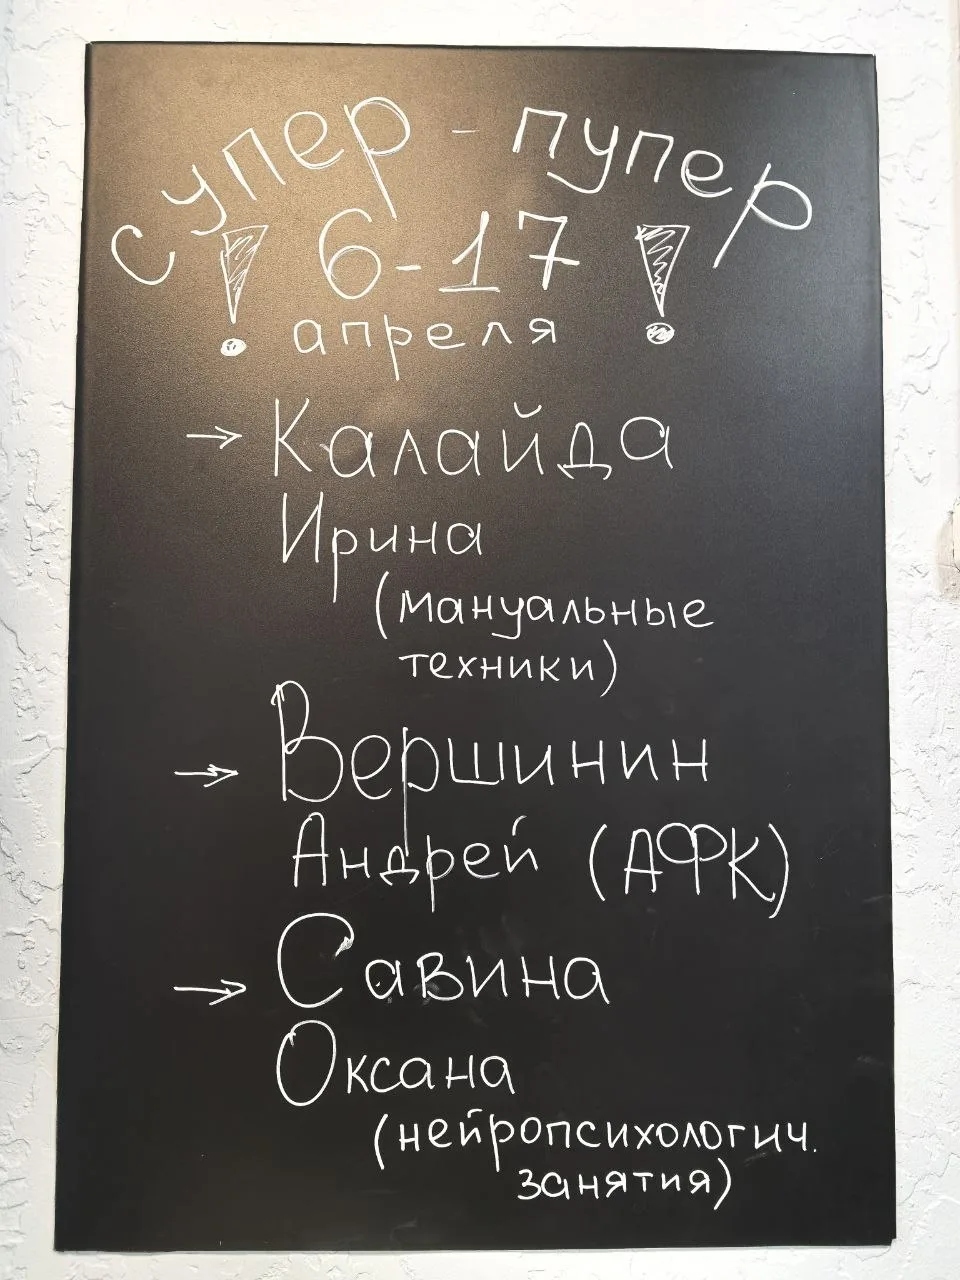 супер - пупер
! 6-17 !
апреля
→ Калайда
Ирина
(мануальные
техники)
→ Вершинин
Андрей (АФК)
→ Савина
Оксана
(нейропсихологич.
занятия)